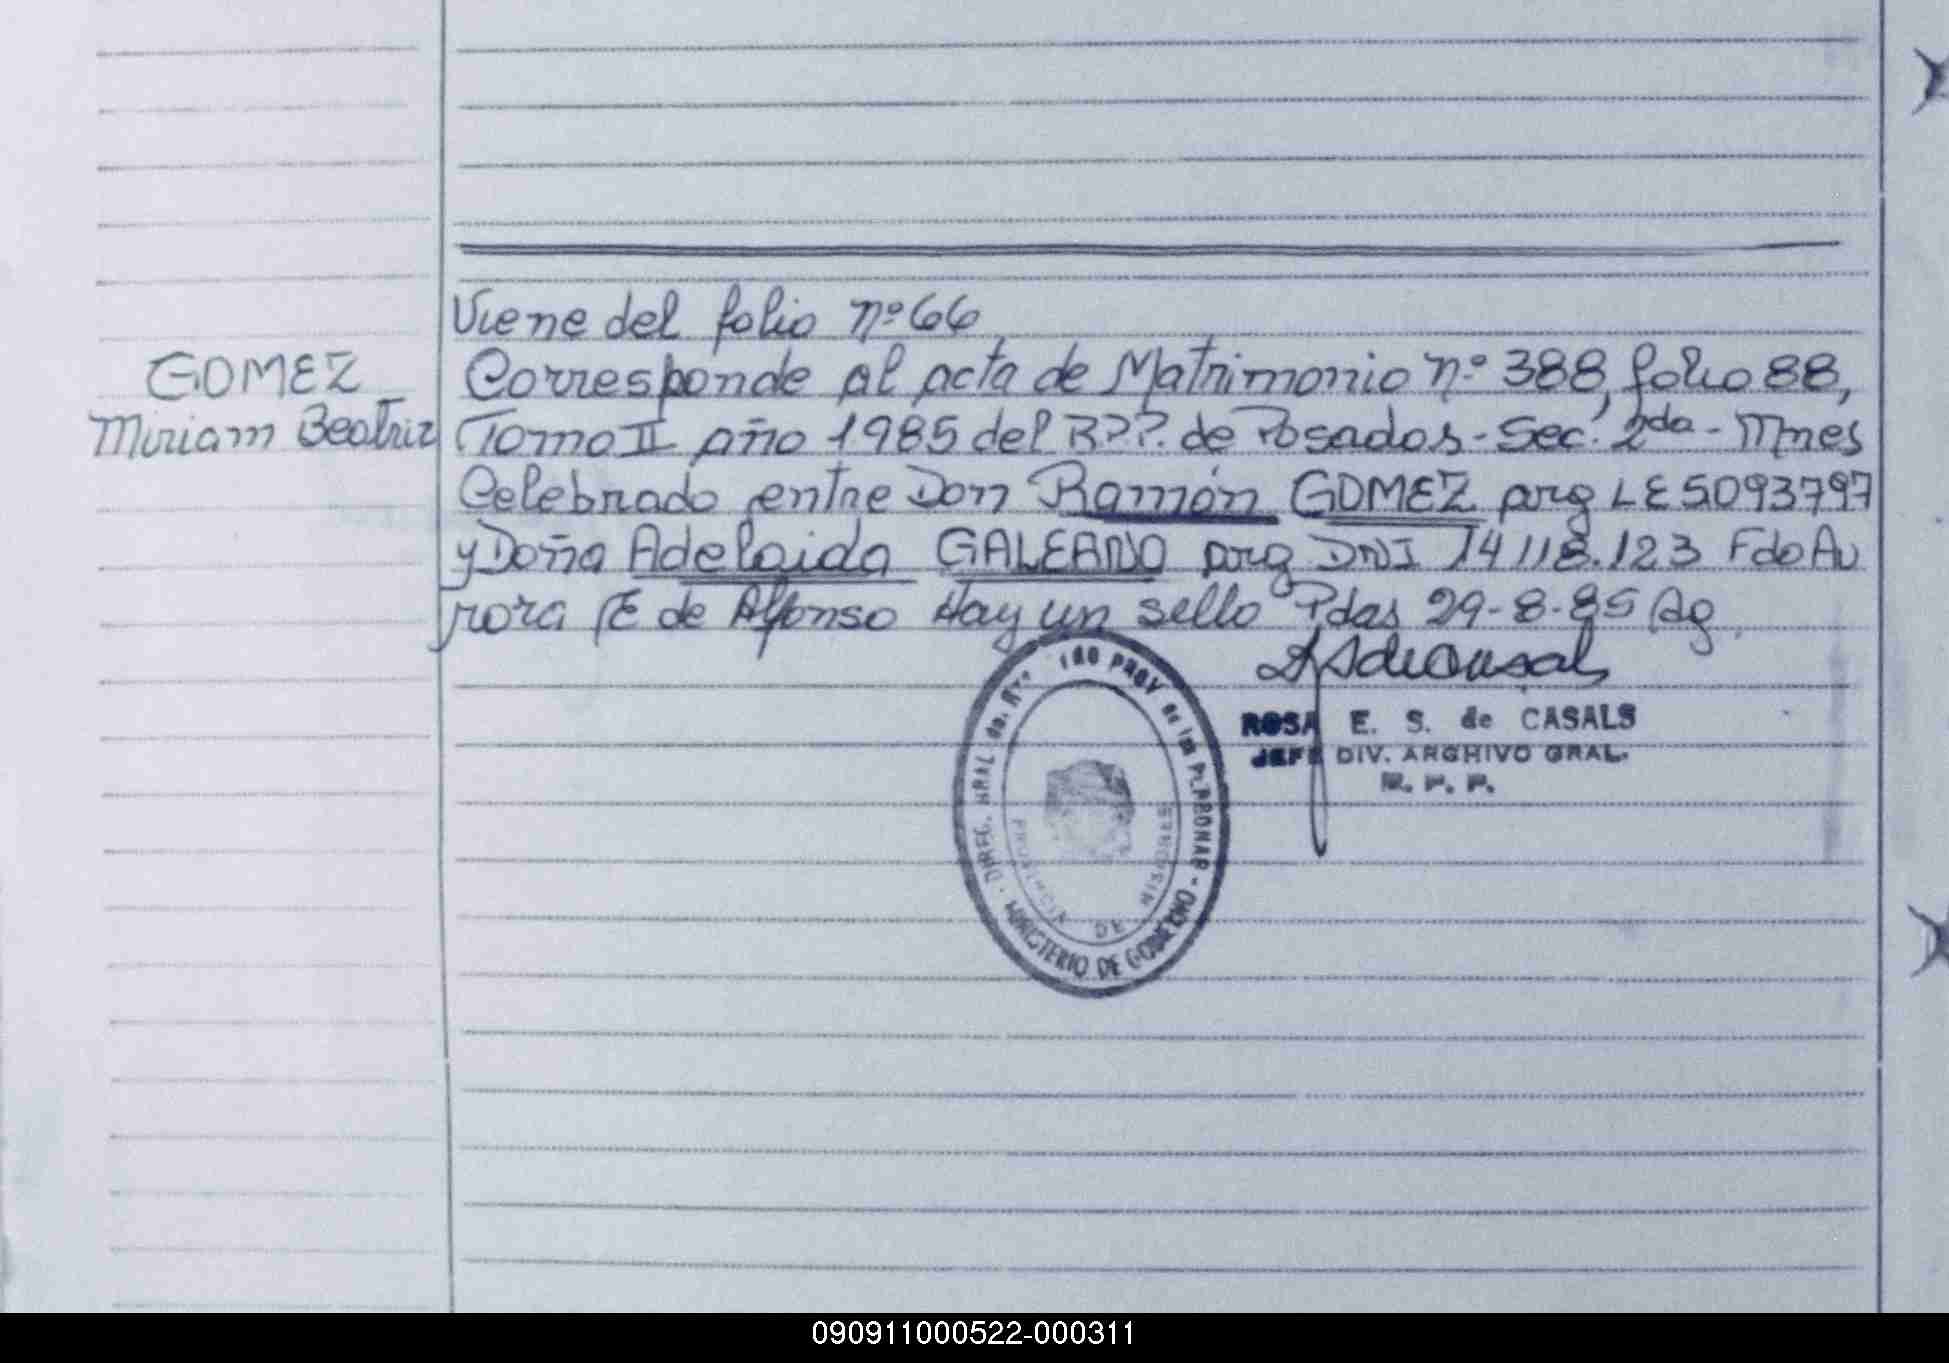 Viene del folio nº 66
GOMEZ
Miriam Beatriz
Corresponde al acta de Matrimonio nº 388, folio 88,
Tomo II año 1985 del R.P.P. de Posadas - Sec. 2da - Mnes
Celebrado entre Don Ramón GOMEZ arg LE 5093797
y Doña Adelaida GALEANO arg DNI 14118.123 Fdo Au
rora E de Alfonso Hay un sello Pdas 29-8-85 Ag
ROSA E. S. de CASALS
JEFE DIV. ARCHIVO GRAL.
R. P. P.
PROV. de las PERSONAS - MINISTERIO DE GOBIERNO
PROVINCIA DE MISIONES
090911000522-000311